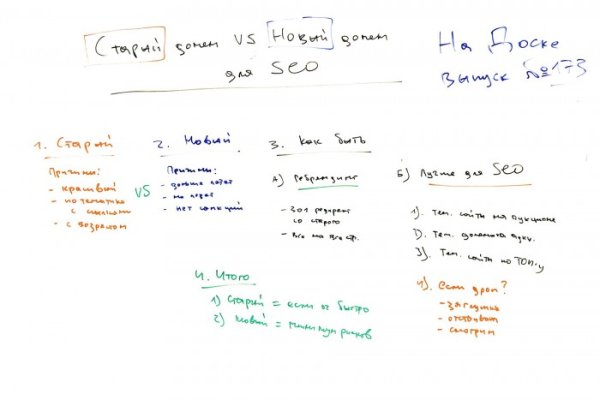 Старый домен VS Новый домен
для SEO
На Доске
выпуск №173
1. Старый
Причины:
- красивый
- по тематике
с ссылками
- с возрастом
VS
2. Новый
Причины:
- дольше
- нет санкций
3. Как быть
А) Ребрендинг
- 301 редирект
со старого
- Все на все стр.
Б) Лучше для SEO
1). Тем. сайты на аукционе
2). Тем. домены
3). Тем. сайты по ТОП-у
4). если дроп?
- загрузка
- отстаиваем
- смотрим
4. Итого
1) Старый = если оч быстро
2) Новый = минимум рисков